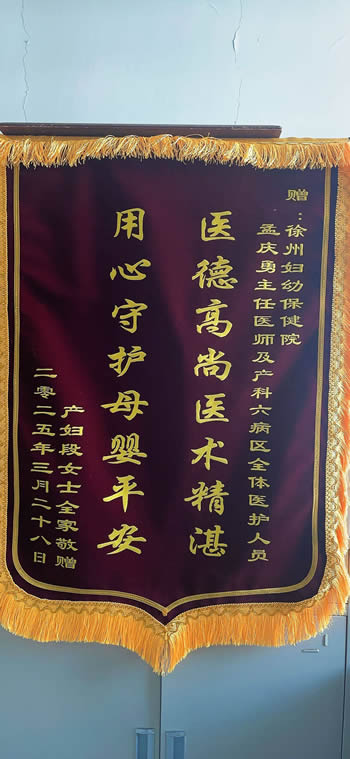 赠：徐州妇幼保健院
孟庆勇主任医师及产科六病区全体医护人员
医德高尚医术精湛
用心守护母婴平安
产妇段女士全家敬赠
二零二五年三月二十八日